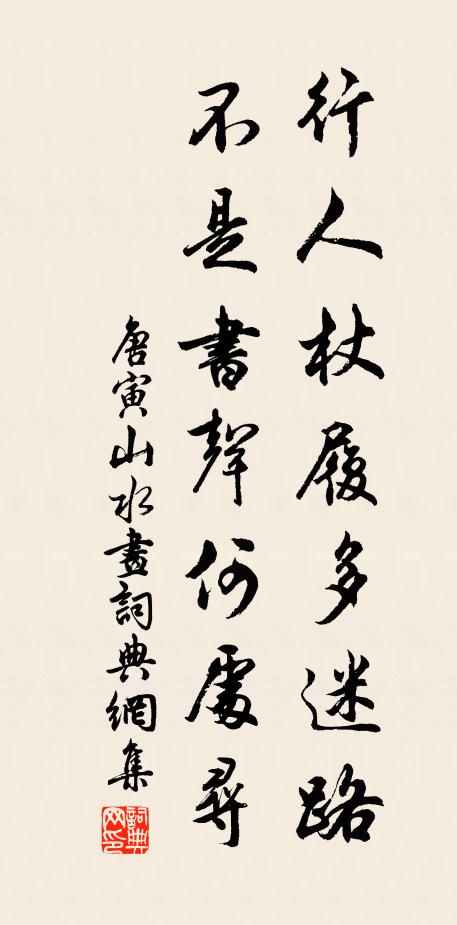 行人杖履多迷路
不是書聲何處尋
唐寅山水畫詞典網集
詞典網印